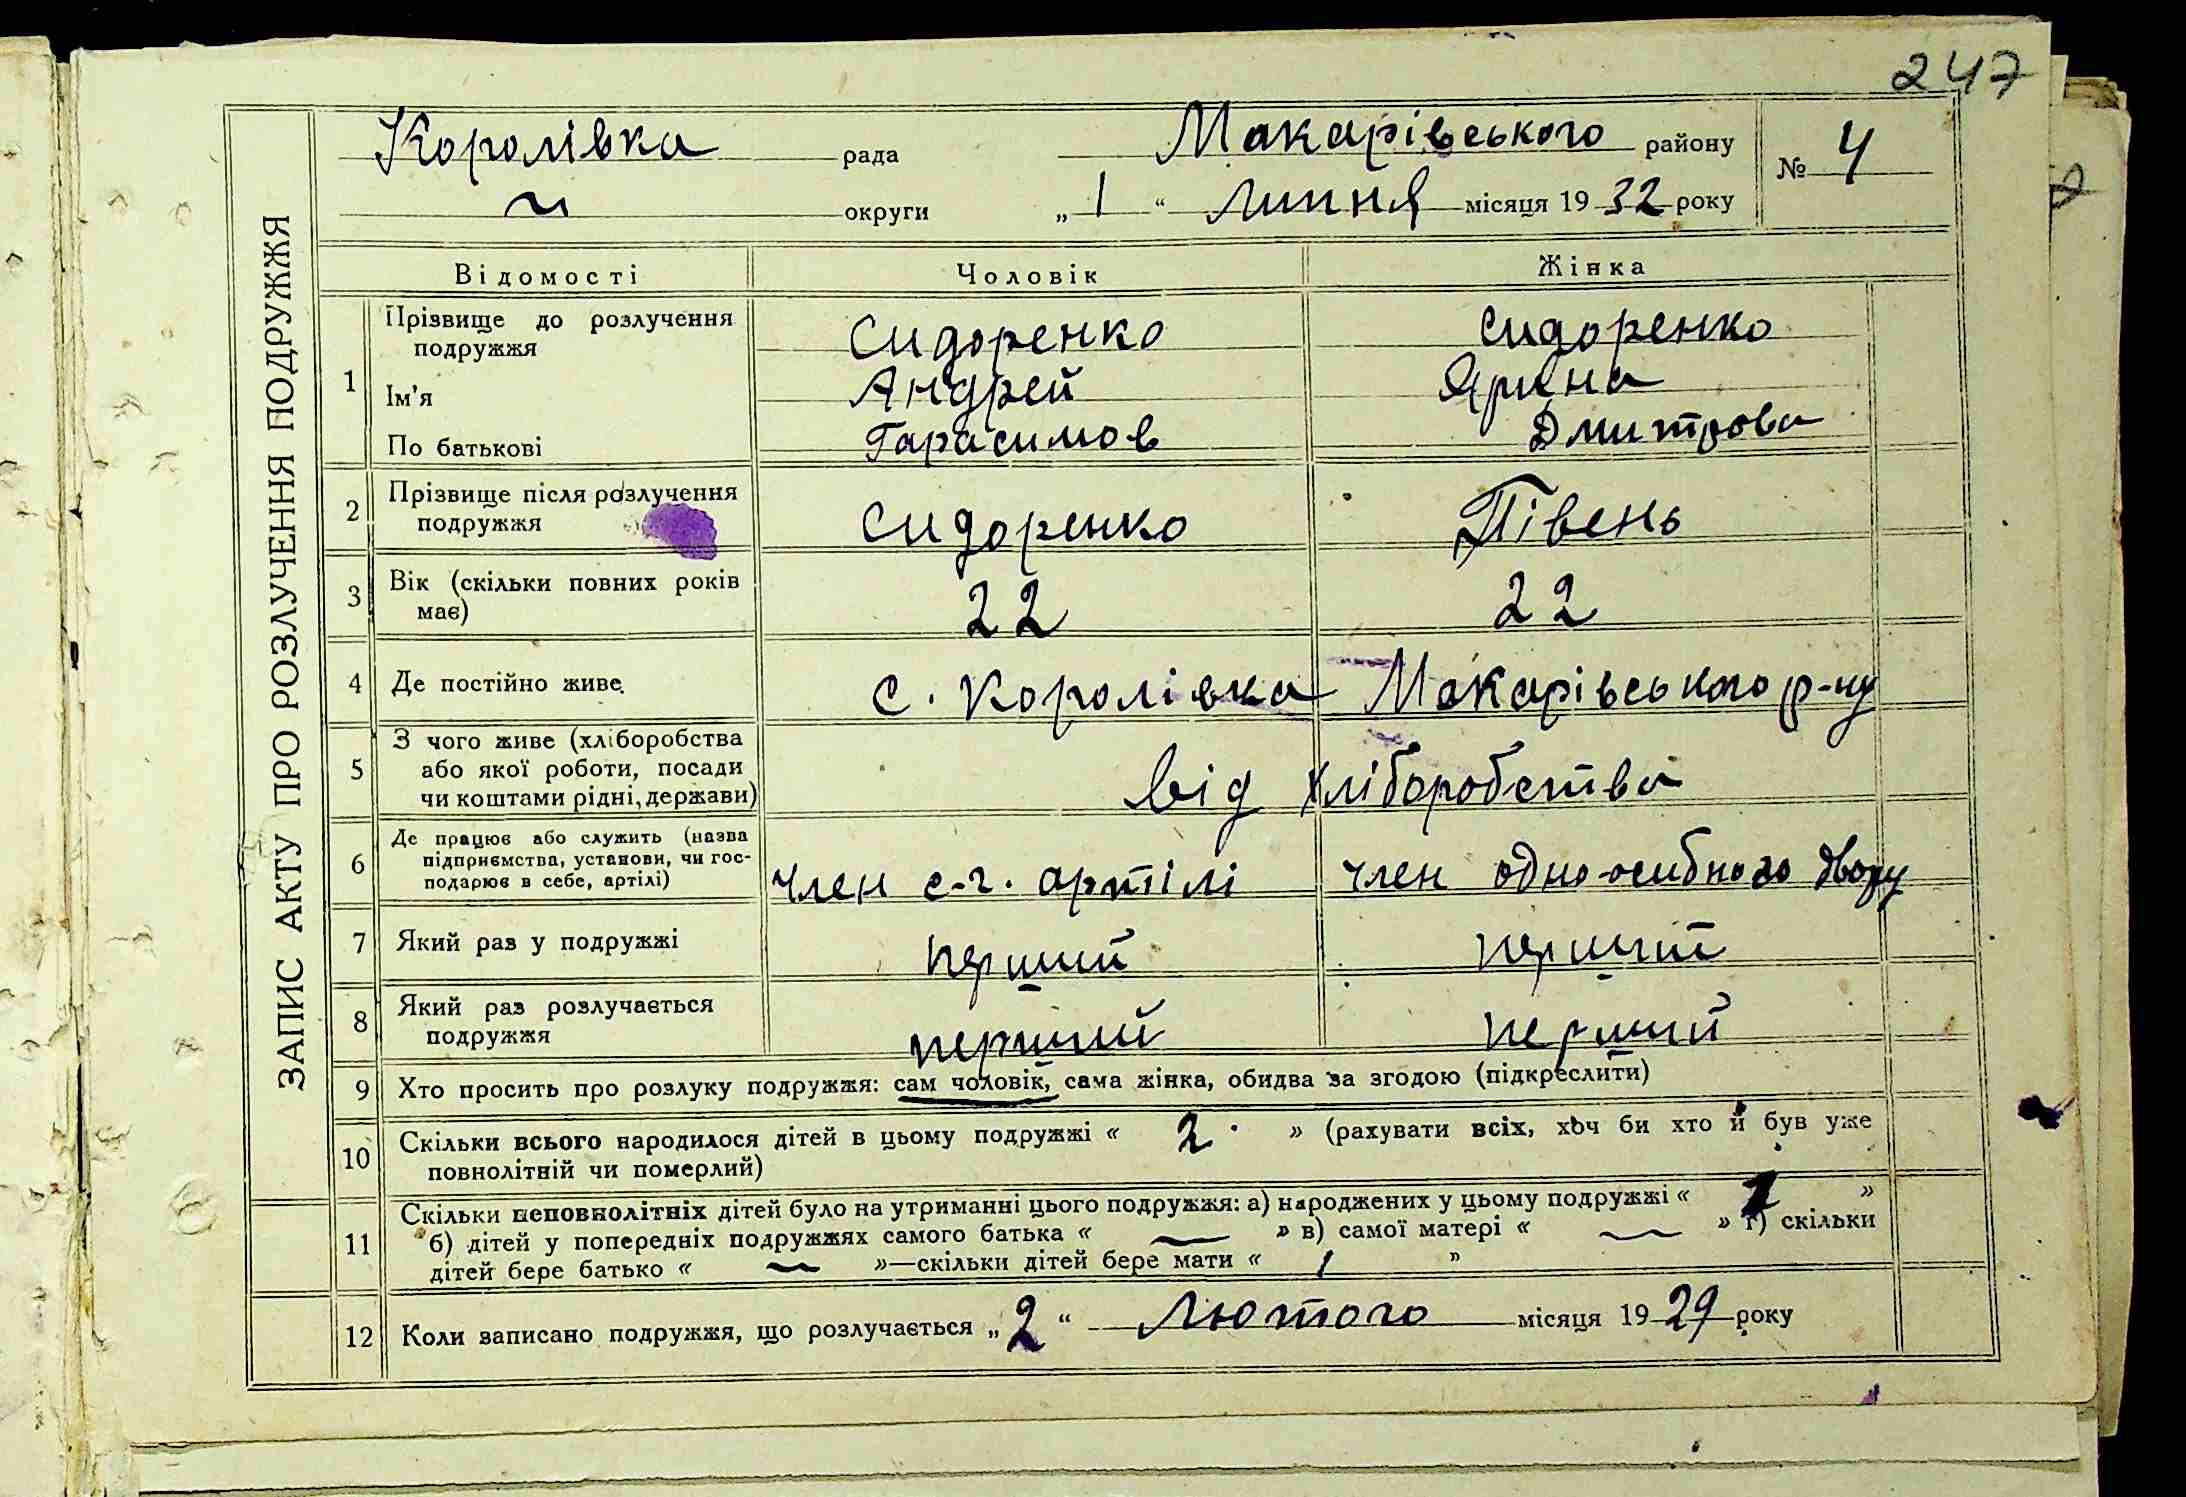 247
ЗАПИС АКТУ ПРО РОЗЛУЧЕННЯ ПОДРУЖЖЯ
Королівка рада Макарівського району № 4
округи „ 1 “ Липня місяця 19 32 року
Відомості Чоловік Жінка
1 Прізвище до розлучення подружжя Сидоренко Сидоренко
Ім'я Андрей Ярина
По батькові Гарасимов Дмитрова
2 Прізвище після розлучення
подружжя Сидоренко Півень
3 Вік (скільки повних років
має) 22 22
4 Де постійно живе с. Королівка Макарівського р-ну
5 З чого живе (хліборобства
або якої роботи, посади
чи коштами рідні, держави) від хліборобства
6 Де працює або служить (назва
підприємства, установи, чи гос-
подарює в себе, артілі) член с-г. артілі член одно-осибного двору
7 Який раз у подружжі перший перший
8 Який раз розлучається
подружжя перший перший
9 Хто просить про розлуку подружжя: сам чоловік, сама жінка, обидва за згодою (підкреслити)
10 Скільки всього народилося дітей в цьому подружжі « 2 » (рахувати всіх, хоч би хто й був уже
повнолітній чи померлий)
11 Скільки неповнолітніх дітей було на утриманні цього подружжя: а) народжених у цьому подружжі « »
б) дітей у попередніх подружжях самого батька « — » в) самої матері « — » г) скільки
дітей бере батько « — »—скільки дітей бере мати « 1 »
12 Коли записано подружжя, що розлучається „ 2 “ Лютого місяця 19 29 року